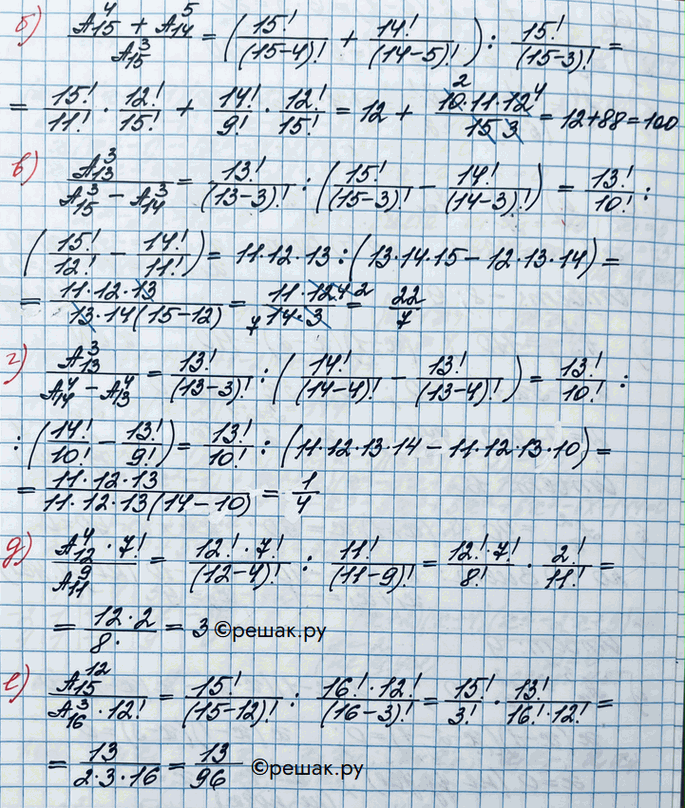 б) (A₁₅⁴ + A₁₄⁵)/A₁₅³ = (15!/(15-4)! + 14!/(14-5)!) : 15!/(15-3)! =
= 15!/11! · 12!/15! + 14!/9! · 12!/15! = 12 + (10² · 11 · 12⁴)/(15 3) = 12+88=100
в) A₁₃³/(A₁₅³ - A₁₄³) = 13!/(13-3)! : (15!/(15-3)! - 14!/(14-3)!) = 13!/10! :
(15!/12! - 14!/11!) = 11·12·13 : (13·14·15 - 12·13·14) =
= (11·12·13)/(13·14(15-12)) = (11·12 4 2)/(7 14·3) = 22/7
г) A₁₃³/(A₁₄⁴ - A₁₃⁴) = 13!/(13-3)! : (14!/(14-4)! - 13!/(13-4)!) = 13!/10! :
: (14!/10! - 13!/9!) = 13!/10! : (11·12·13·14 - 11·12·13·10) =
= (11·12·13)/(11·12·13(14-10)) = 1/4
д) (A₁₂⁴ · 7!)/A₁₁⁹ = (12! · 7!)/(12-4)! : 11!/(11-9)! = (12! · 7!)/8! · 2!/11! =
= (12·2)/(8·) = 3 ©решак.ру
е) A₁₅¹²/(A₁₆³ · 12!) = 15!/(15-12)! : (16! · 12!)/(16-3)! = 15!/3! · 13!/(16! · 12!) =
= 13/(2·3·16) = 13/96 ©решак.ру